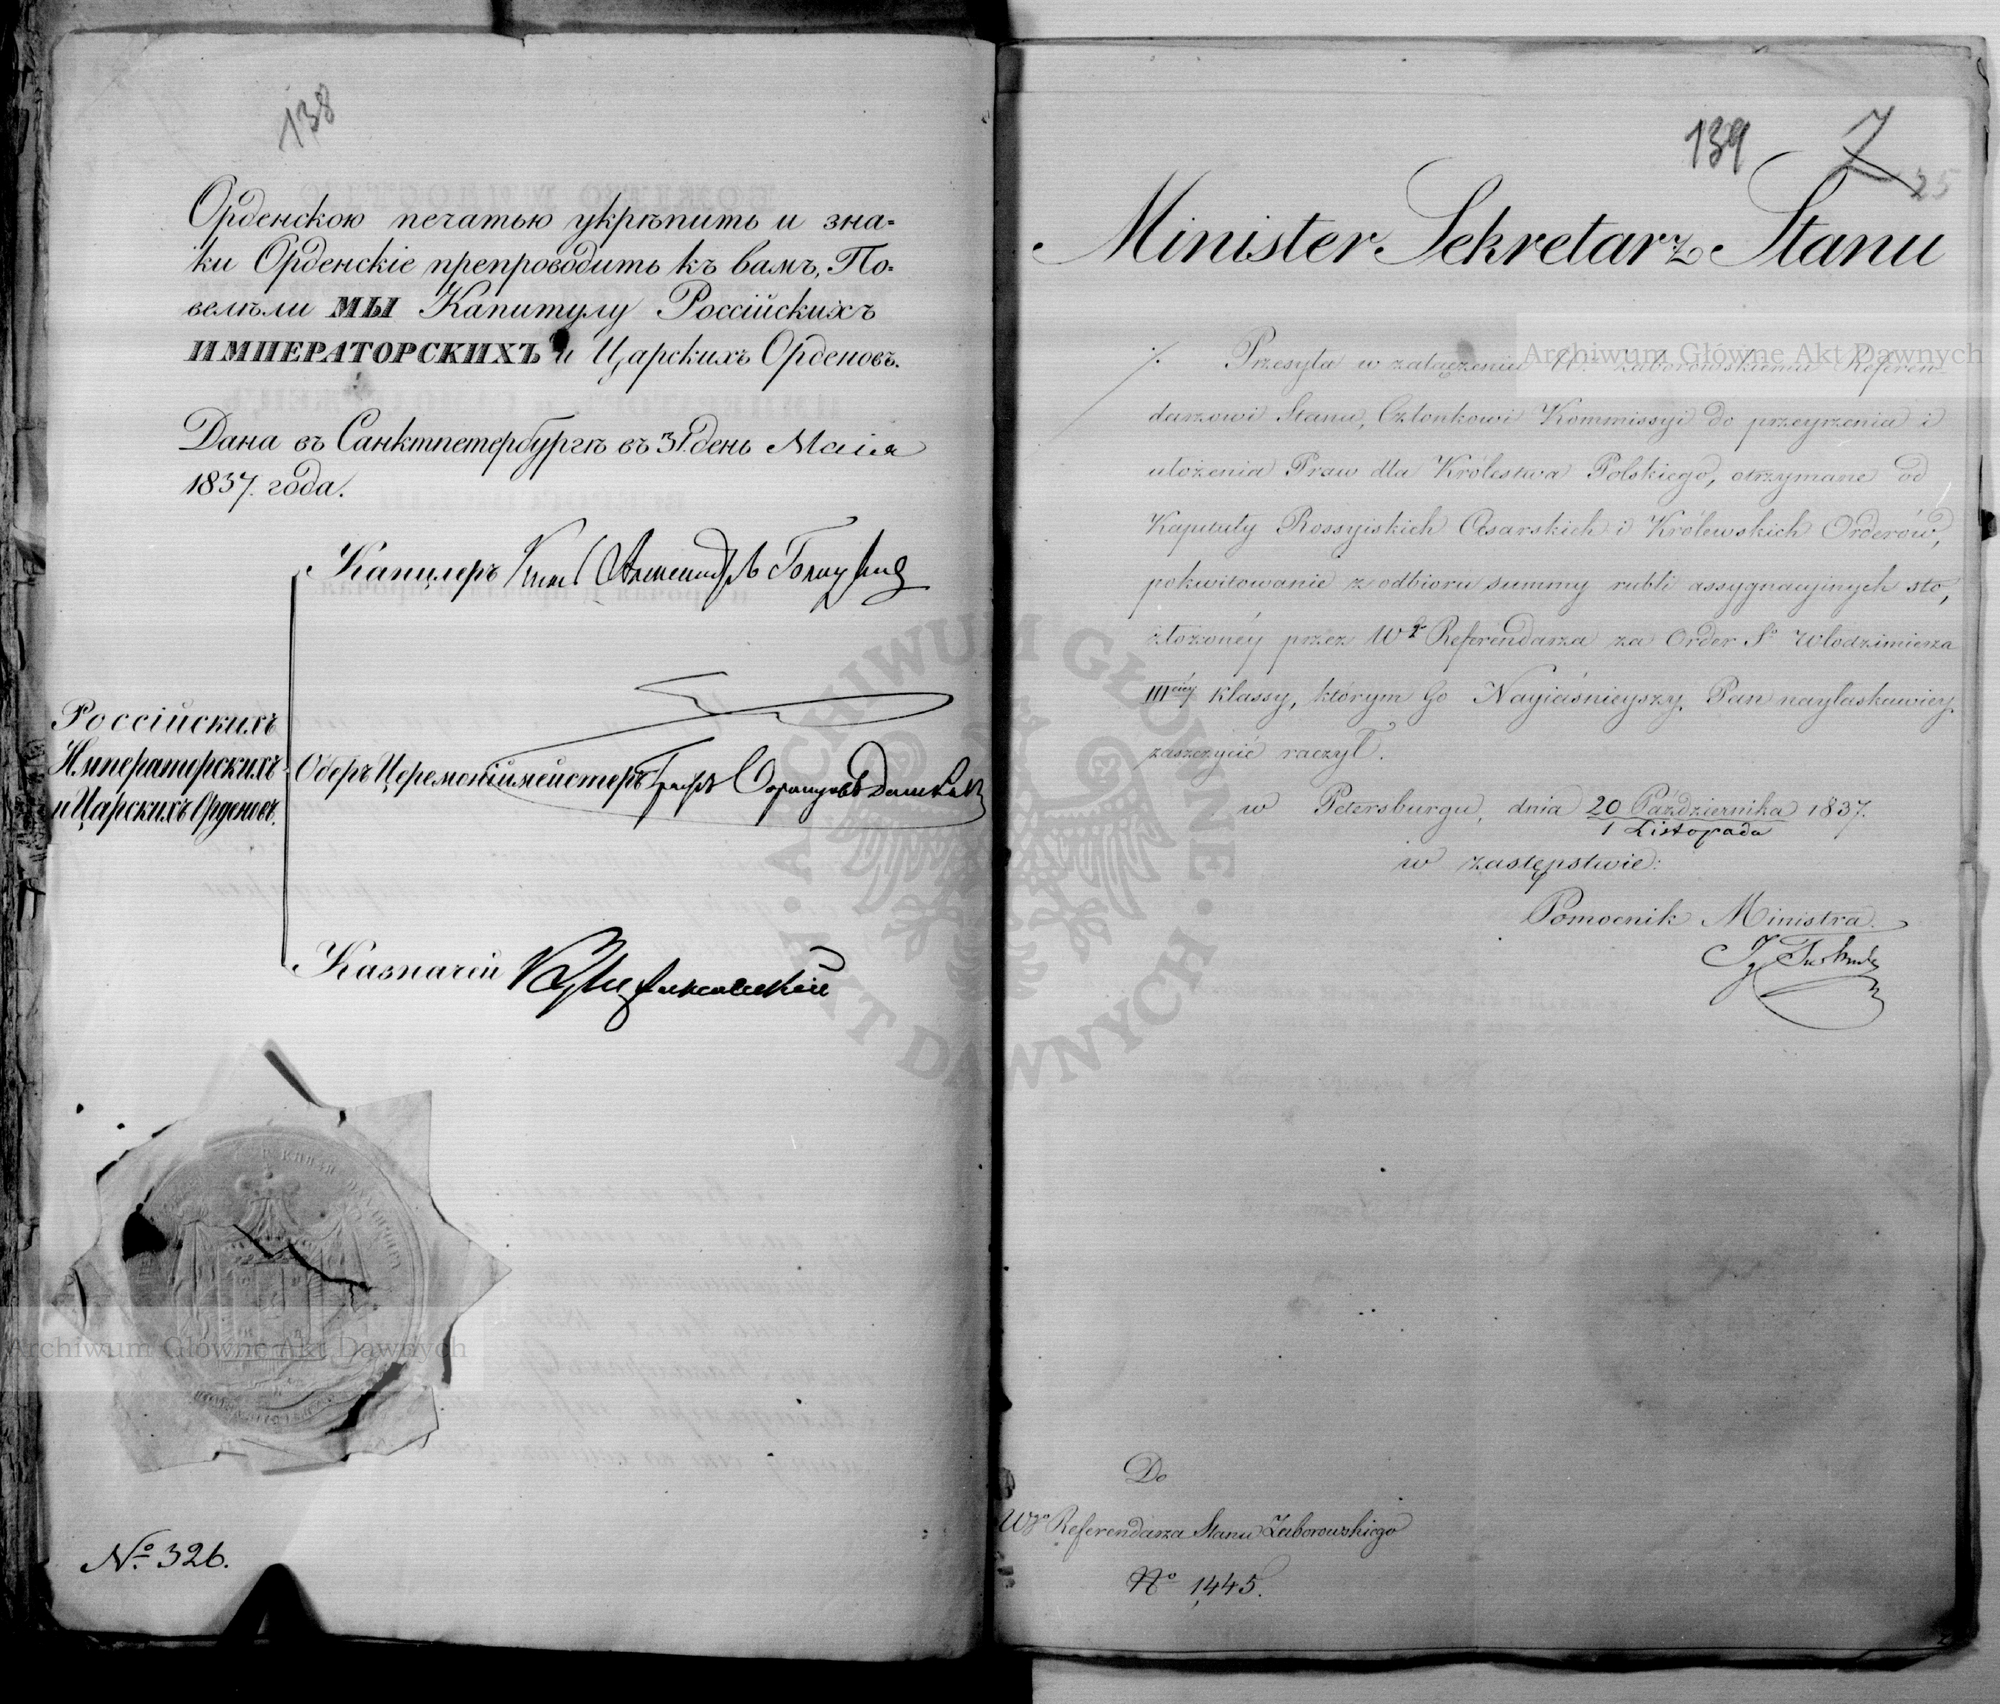 138
Орденскою печатью укрѣпить и зна=
ки Орденскіе препроводить къ вамъ, По=
велѣли МЫ Капитулу Россійскихъ
ИМПЕРАТОРСКИХЪ и Царскихъ Орденовъ.
Дана въ Санктпетербургѣ въ 31 день Маія
1837. года.
Канцлеръ Князь Александръ Голицынъ
Россійскихъ
Императорскихъ
и Царскихъ Орденовъ.
Оберъ Церемоніймейстеръ Графъ Воронцовъ Дашковъ
Казначей
№ 326.
139 7
25
Minister Sekretarz Stanu
·/. Przesyła w załączeniu W. Zaborowskiemu Referen=
darzowi Stanu, Członkowi Kommissyi do przeyrzenia i
ułożenia Praw dla Królestwa Polskiego, otrzymane od
Kapituły Rossyiskich Cesarskich i Królewskich Orderów,
pokwitowanie z odbioru summy rubli assygnacyjnych sto,
złożonéy przez Wgo Referendarza za Order So Włodzimierza
IIIciéy klassy, którym Go Nayiaśnieyszy Pan naylaskawiey
zaszczycić raczył.
w Petersburgu, dnia 20 Października 1837.
1 Listopada
w zastępstwie:
Pomocnik Ministra
Do
Wgo Referendarza Stanu Zaborowskiego
No 1,445.
Archiwum Główne Akt Dawnych
Archiwum Główne Akt Dawnych
ARCHIWUM GŁÓWNE
AKT DAWNYCH